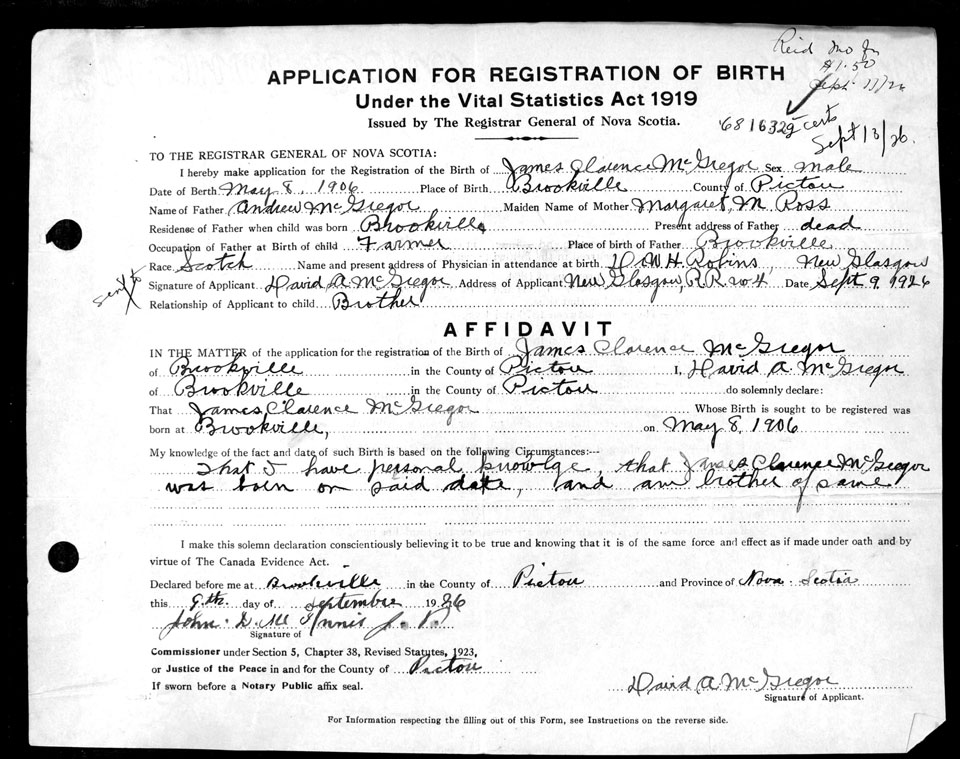 Reid Mo Jr
$1.50
Sept 13/26
APPLICATION FOR REGISTRATION OF BIRTH
Under the Vital Statistics Act 1919
Issued by The Registrar General of Nova Scotia.
certs
Sept 13/26.
TO THE REGISTRAR GENERAL OF NOVA SCOTIA:
I hereby make application for the Registration of the Birth of James Clarence McGregor Sex male
Date of Berth May 8, 1906 Place of Birth Brookville County of Pictou
Name of Father Andrew McGregor Maiden Name of Mother Margaret M. Ross
Residense of Father when child was born Brookville Present address of Father dead
Occupation of Father at Birth of child Farmer Place of birth of Father Brookville
Race Scotch Name and present address of Physician in attendance at birth W.H. Robins, New Glasgow
Signature of Applicant David A McGregor Address of Applicant New Glasgow, RR no 4 Date Sept 9, 1926
Relationship of Applicant to child Brother
AFFIDAVIT
IN THE MATTER of the application for the registration of the Birth of James Clarence McGregor
of Brookville in the County of Pictou I, David A. McGregor
of Brookville in the County of Pictou do solemnly declare:
That James Clarence McGregor Whose Birth is sought to be registered was
born at Brookville, on May 8, 1906
My knowledge of the fact and date of such Birth is based on the following Circumstances:---
That I have personal knowlge, that James Clarence McGregor
was born on said date, and am brother of same
I make this solemn declaration conscientiously believing it to be true and knowing that it is of the same force and effect as if made under oath and by
virtue of The Canada Evidence Act.
Declared before me at Brookville in the County of Pictou and Province of Nova Scotia
this 9th day of September 1926
John D. McInnis J.P.
Signature of
Commissioner under Section 5, Chapter 38, Revised Statutes, 1923,
or Justice of the Peace in and for the County of Pictou
If sworn before a Notary Public affix seal.
David A McGregor
Signature of Applicant.
For Information respecting the filling out of this Form, see Instructions on the reverse side.